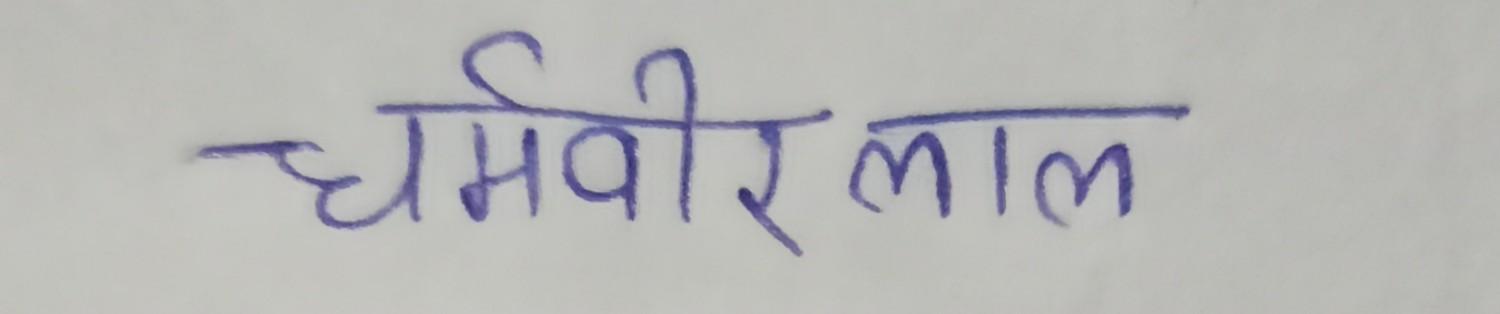 धर्मवीर लाल